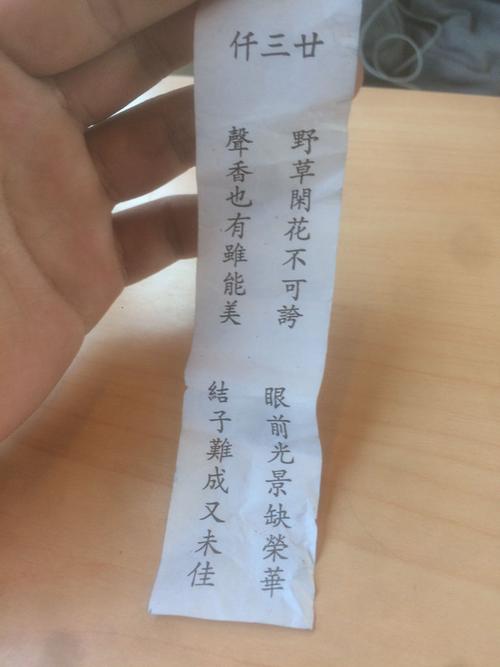 廿三仟
野草閑花不可誇
眼前光景缺榮華
聲香也有雖能美
結子難成又未佳